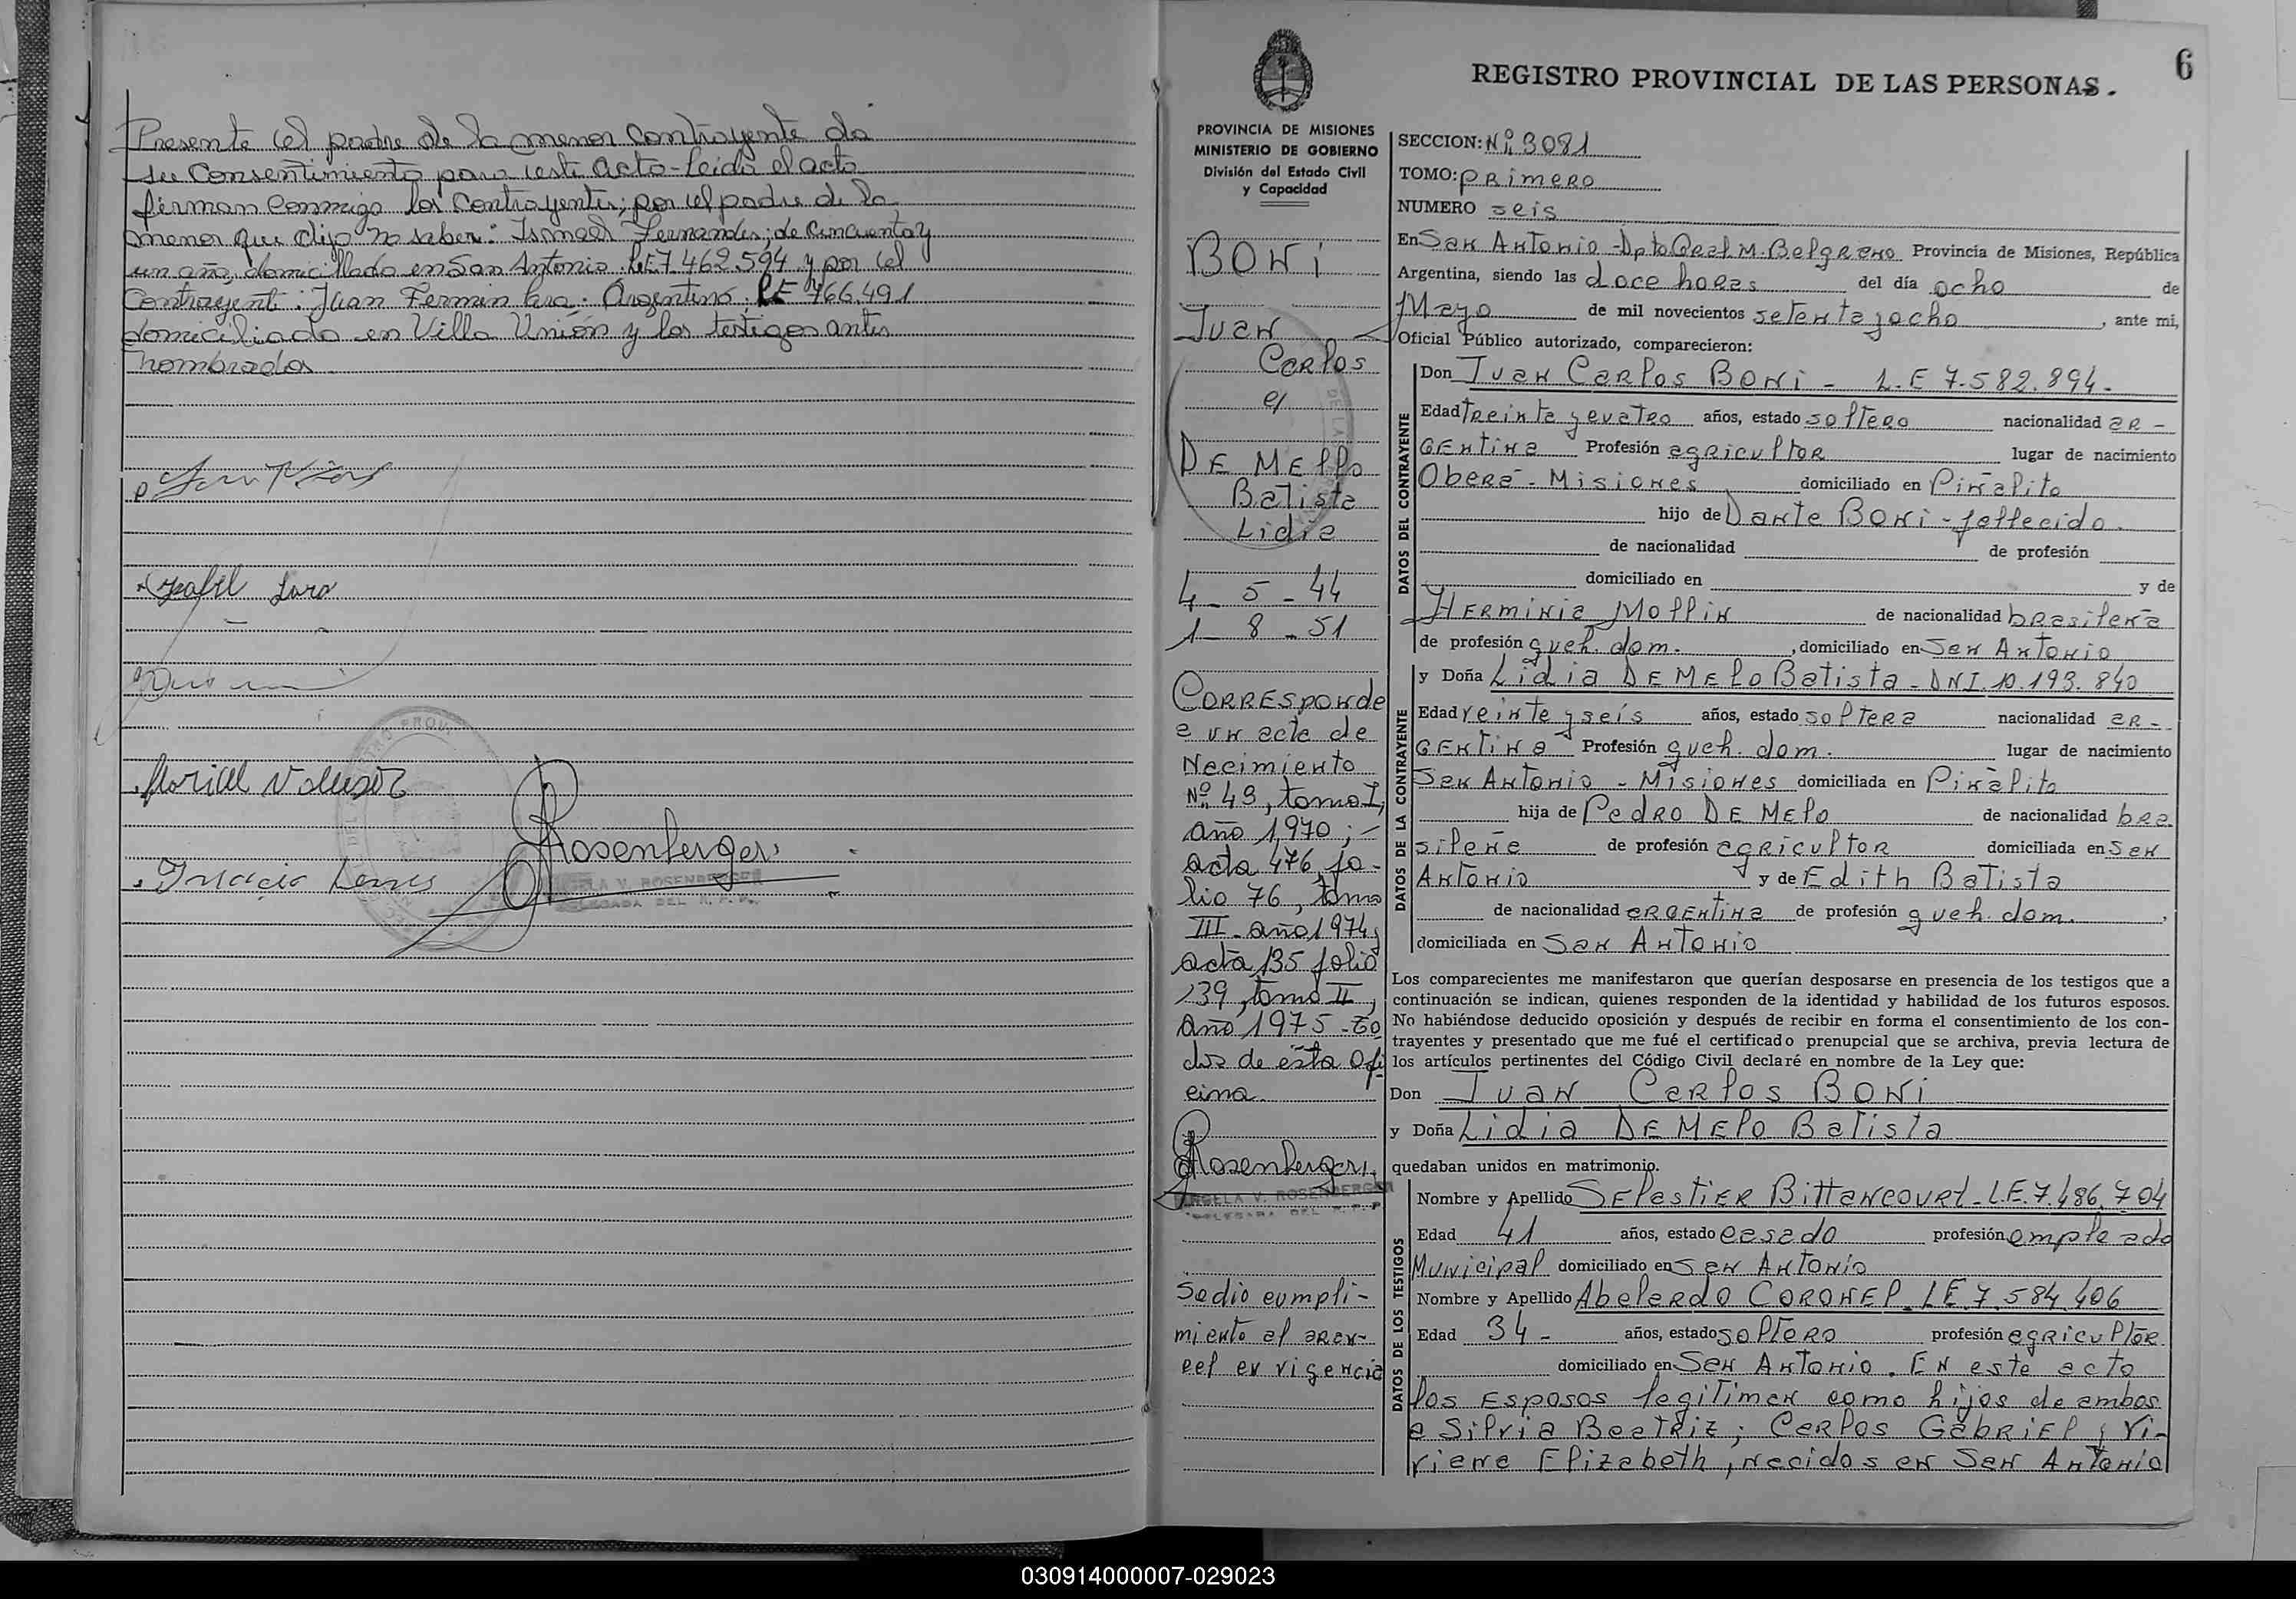 Presente el padre de la menor contrayente da
su Consentimiento para este acto - Leida el acta
firman conmigo los Contrayentes; por el padre de la
menor que dijo no saber: Ismael Fernandes; de cincuenta y
un año, domicillado en San Antonio. L.E 7.462.594 y por el
Contrayente: Juan Fermin Lara. Argentino; LE 766.491
domiciliado en Villa Unión y los testigos antes
nombrados
Lara
Rosenberger
ANGELA V. ROSENBERGER
DELEGADA DEL R. P. P.
6
REGISTRO PROVINCIAL DE LAS PERSONAS.
PROVINCIA DE MISIONES
MINISTERIO DE GOBIERNO
División del Estado Civil
y Capacidad
BONi
Juan
Carlos
c/
DE MELLO
Batista
Lidia
4 - 5 - 44
1 - 8 - 51
Corresponde
a un acta de
Nacimiento
Nº 43, tomo I,
año 1970; -
acta 476, fo-
lio 76, tomo
III - año 1974,
acta 135 folio
139, tomo II,
año 1975 - to
dos de esta Ofi
cina.
Rosenberger
ANGELA V. ROSENBERGER
DELEGADA DEL R. P. P
Se dió cumpli-
miento al aran-
cel en vigencia
SECCION: Nº 3081
TOMO: primero
NUMERO seis
En San Antonio - Dpto Gral. M. Belgrano Provincia de Misiones, República
Argentina, siendo las doce horas del día ocho de
Mayo de mil novecientos setenta y ocho, ante mi,
Oficial Público autorizado, comparecieron:
DATOS DEL CONTRAYENTE
Don Juan Carlos BONi - L.E 7.582.894.
Edad treinta y cuatro años, estado soltero nacionalidad ar-
gentina Profesión agricultor lugar de nacimiento
Oberá - Misiones domiciliado en Piñalito
hijo de Dante BONi - fallecido.
de nacionalidad de profesión
domiciliado en y de
Herminia Mollin de nacionalidad brasileña
de profesión queh. dom., domiciliado en San Antonio
DATOS DE LA CONTRAYENTE
y Doña Lidia DE MELO Batista - DNI. 10.193.840
Edad veinte y seis años, estado soltera nacionalidad ar-
gentina Profesión queh. dom. lugar de nacimiento
San Antonio - Misiones domiciliada en Piñalito
hija de Pedro DE MELO de nacionalidad bra
sileñe de profesión agricultor domiciliada en San
Antonio y de Edith Batista
de nacionalidad argentina de profesión queh. dom.,
domiciliada en San Antonio
Los comparecientes me manifestaron que querían desposarse en presencia de los testigos que a
continuación se indican, quienes responden de la identidad y habilidad de los futuros esposos.
No habiéndose deducido oposición y después de recibir en forma el consentimiento de los con-
trayentes y presentado que me fué el certificado prenupcial que se archiva, previa lectura de
los artículos pertinentes del Código Civil declaré en nombre de la Ley que:
Don Juan Carlos BONi
y Doña Lidia DE MELO Batista
quedaban unidos en matrimonio.
DATOS DE LOS TESTIGOS
Nombre y Apellido Selestier Bittancourt - L.E. 7.486.704
Edad 41 años, estado casado profesión empleado
Municipal domiciliado en San Antonio
Nombre y Apellido Abelardo CORONEL - LE. 7.584.406
Edad 34 - años, estado soltero profesión agricultor
domiciliado en San Antonio. En este acto
los esposos legitiman como hijos de ambos
a Silvia Beatriz; Carlos Gabriel y Vi-
viana Elizabeth, nacidos en San Antonio
030914000007-029023